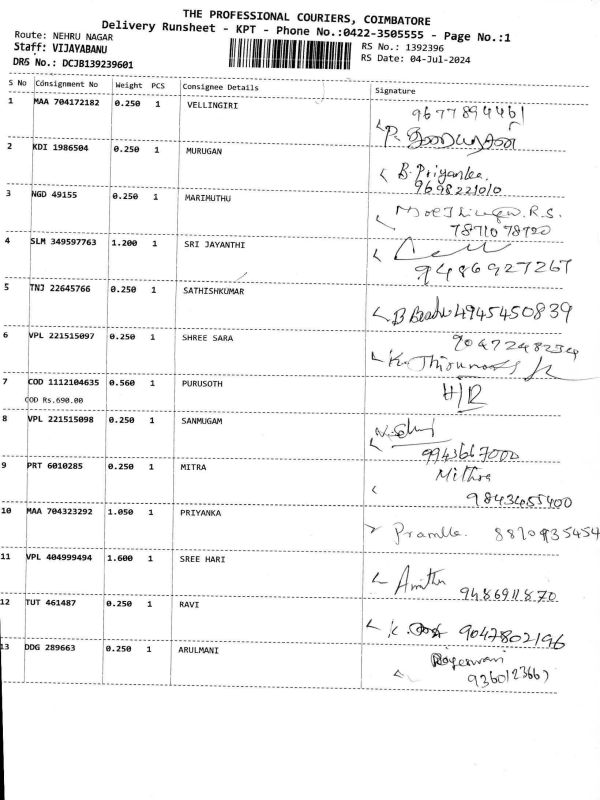 THE PROFESSIONAL COURIERS, COIMBATORE
Delivery Runsheet - KPT - Phone No.:0422-3505555 - Page No.:1
Route: NEHRU NAGAR
RS No.: 1392396
Staff: VIJAYABANU
RS Date: 04-Jul-2024
DRS No.: DCJB139239601
S No Consignment No Weight PCS Consignee Details Signature
1 MAA 704172182 0.250 1 VELLINGIRI 9677894461
2 KDI 1986504 0.250 1 MURUGAN B. Priyanka.
9698221010
3 NGD 49155 0.250 1 MARIMUTHU R.S.
7871078720
4 SLM 349597763 1.200 1 SRI JAYANTHI
9486927267
5 TNJ 22645766 0.250 1 SATHISHKUMAR
4945450839
6 VPL 221515097 0.250 1 SHREE SARA 9047248234
7 COD 1112104635 0.560 1 PURUSOTH H/R
COD Rs.690.00
8 VPL 221515098 0.250 1 SANMUGAM
9943667000
9 PRT 6010285 0.250 1 MITRA Mithra
9843455400
10 MAA 704323292 1.050 1 PRIYANKA
8870935454
11 VPL 404999494 1.600 1 SREE HARI
9486911870
12 TUT 461487 0.250 1 RAVI K. 9047802196
13 DDG 289663 0.250 1 ARULMANI Rajeswari
9360123667